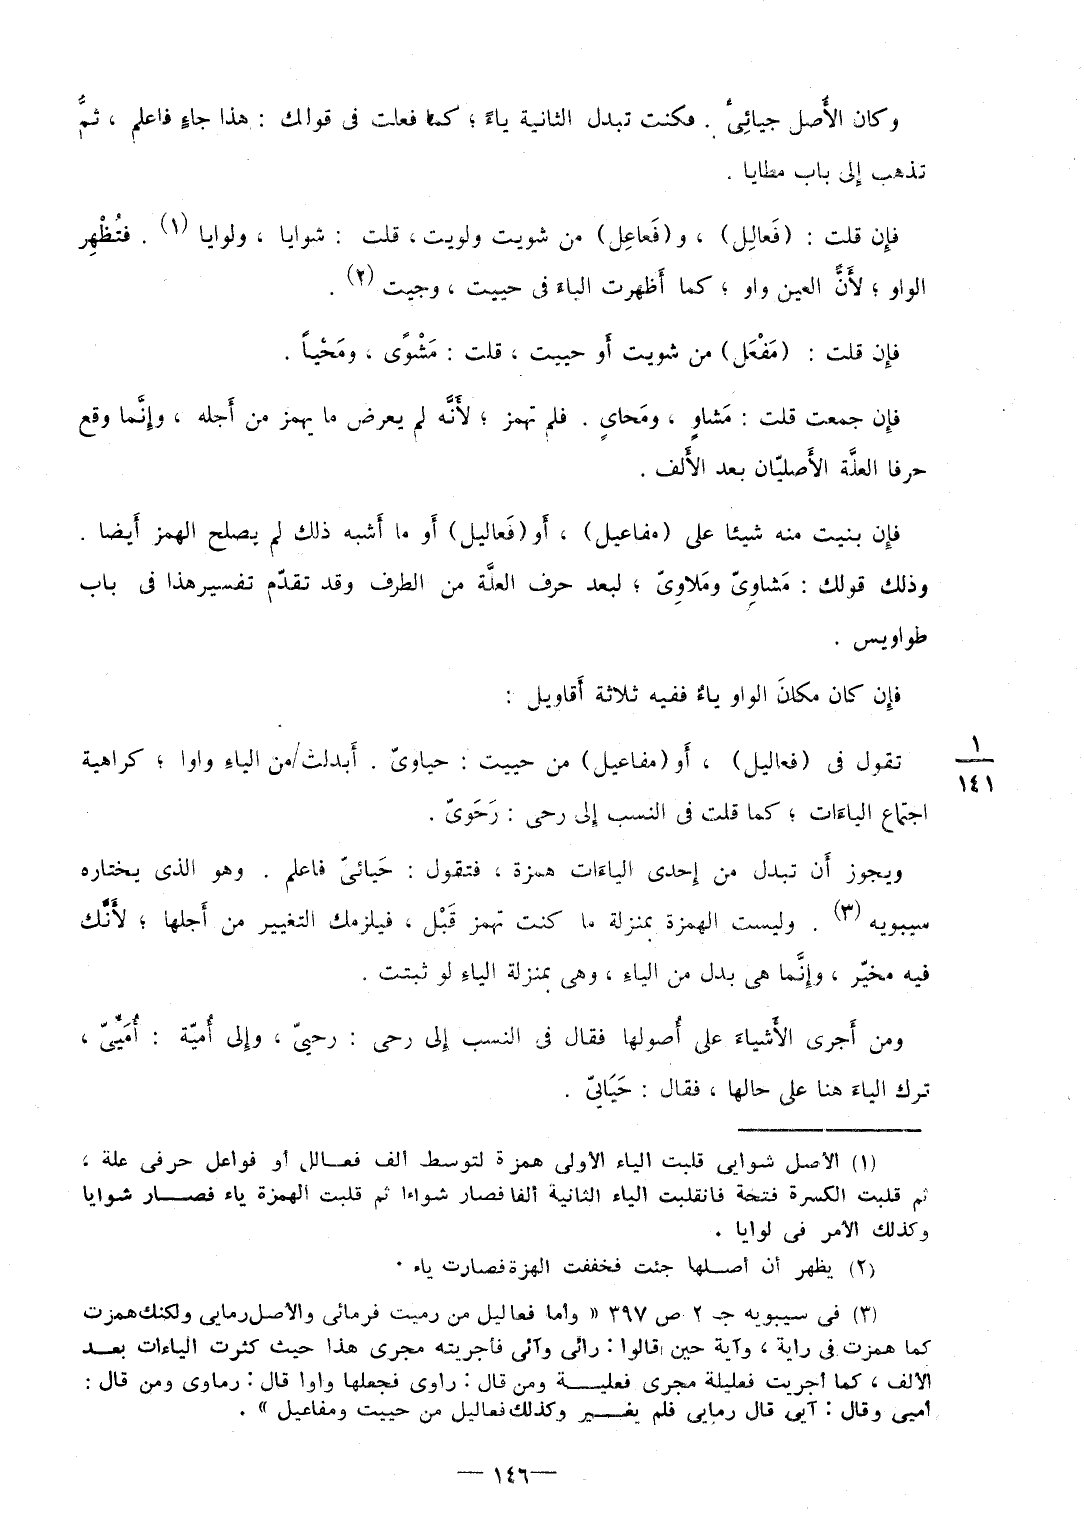 وكان الأَصل جيائِىُ . فكنت تبدل الثانية ياءً ؛ كما فعلت فى قولك : هذا جاءٍ فاعلم ، ثمَّ
تذهب إلى باب مطايا .
فإن قلت : (فَعالِل) ، و(فَعاعِل) من شويت ولويت، قلت : شوايا ، ولوايا (١) . فتُظْهِر
الواو ؛ لأَنَّ العين واو ؛ كما أظهرت الياءَ فى حييت ، وجيت (٢) .
فإن قلت : (مَفْعَل) من شويت أَو حييت ، قلت : مَشْوًى ، ومَحْياً .
فإن جمعت قلت : مَشاوٍ ، ومَحاىٍ . فلم تهمز ؛ لأَنَّه لم يعرض ما يهمز من أَجله ، وإنَّما وقع
حرفا العلَّة الأَصليّان بعد الأَلف .
فإن بنيت منه شيئا على (مفاعيل) ، أَو(فَعاليل) أَو ما أَشبه ذلك لم يصلح الهمز أَيضا .
وذلك قولك : مَشاوِىّ ومَلاوِىّ ؛ لبعد حرف العلَّة من الطرف وقد تقدّم تفسيرهذا فى باب
طواويس .
فإن كان مكانَ الواو ياءٌ ففيه ثلاثة أَقاويل :
١
١٤١
تقول فى (فعاليل) ، أَو(مفاعيل) من حييت : حياوىّ . أَبدلت/من الياءِ واوا ؛ كراهية
اجتماع الياءَات ؛ كما قلت فى النسب إلى رحى : رَحَوىّ .
ويجوز أَن تبدل من إحدى الياءَات همزة ، فتقول : حَيائىّ فاعلم . وهو الذى يختاره
سيبويه (٣) . وليست الهمزة بمنزلة ما كنت تهمز قَبْل ، فيلزمك التغيير من أَجلها ؛ لأَنَّك
فيه مخيّر ، وإنَّما هى بدل من الياءِ ، وهى بمنزلة الياءِ لو ثبتت .
ومن أَجرى الأَشياءَ على أُصولها فقال فى النسب إلى رحى : رحيىّ ، وإلى أُميّة : أُمَيِّىّ ،
ترك الياءَ هنا على حالها ، فقال : حَيَايىّ .
(١) الأصل شوايى قلبت الياء الأولى همزة لتوسط ألف فعالل أو فواعل حرفى علة ،
ثم قلبت الكسرة فتحة فانقلبت الياء الثانية ألفا فصار شواءا ثم قلبت الهمزة ياء فصار شوايا
وكذلك الأمر فى لوايا .
(٢) يظهر أن أصلها جئت فخففت الهزة فصارت ياء .
(٣) فى سيبويه جـ ٢ ص ٣٩٧ « وأما فعاليل من رميت فرمائى والأصل رمايى ولكنك همزت
كما همزت فى راية ، وآية حين قالوا : رائى وآئى فأجريته مجرى هذا حيث كثرت الياءات بعد
الألف ، كما أجريت فعليلة مجرى فعلية ومن قال : راوى فجعلها واوا قال : رماوى ومن قال :
أميى وقال : آيى قال رمايى فلم يغير وكذلك فعاليل من حييت ومفاعيل » .
— ١٤٦ —